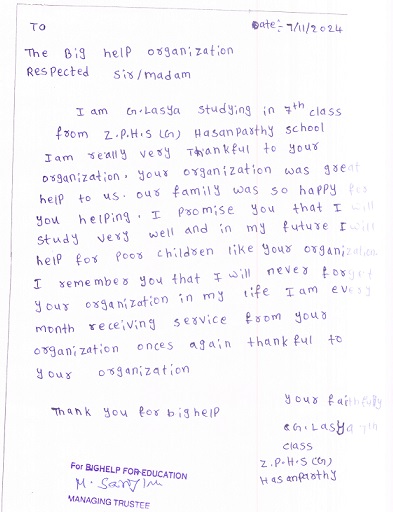 TO
Date:- 7/11/2024
The Big help organization
Respected Sir/madam
I am G.Lasya studying in 7th class
from Z.P.H.S (G) Hasanparthy school
I am really very Thankful to your
organization. your organization was great
help to us. our family was so happy for
you helping. I promise you that I will
study very well and in my future I will
help for poor children like your organization.
I remember you that I will never forgot
your organization in my life I am every
month receiving service from your
organization onces again thankful to
your organization
Thank you for bighelp
your faithfully
G.Lasya 7th
class
Z.P.H.S (G)
Hasanparthy
For BIGHELP FOR EDUCATION
MANAGING TRUSTEE